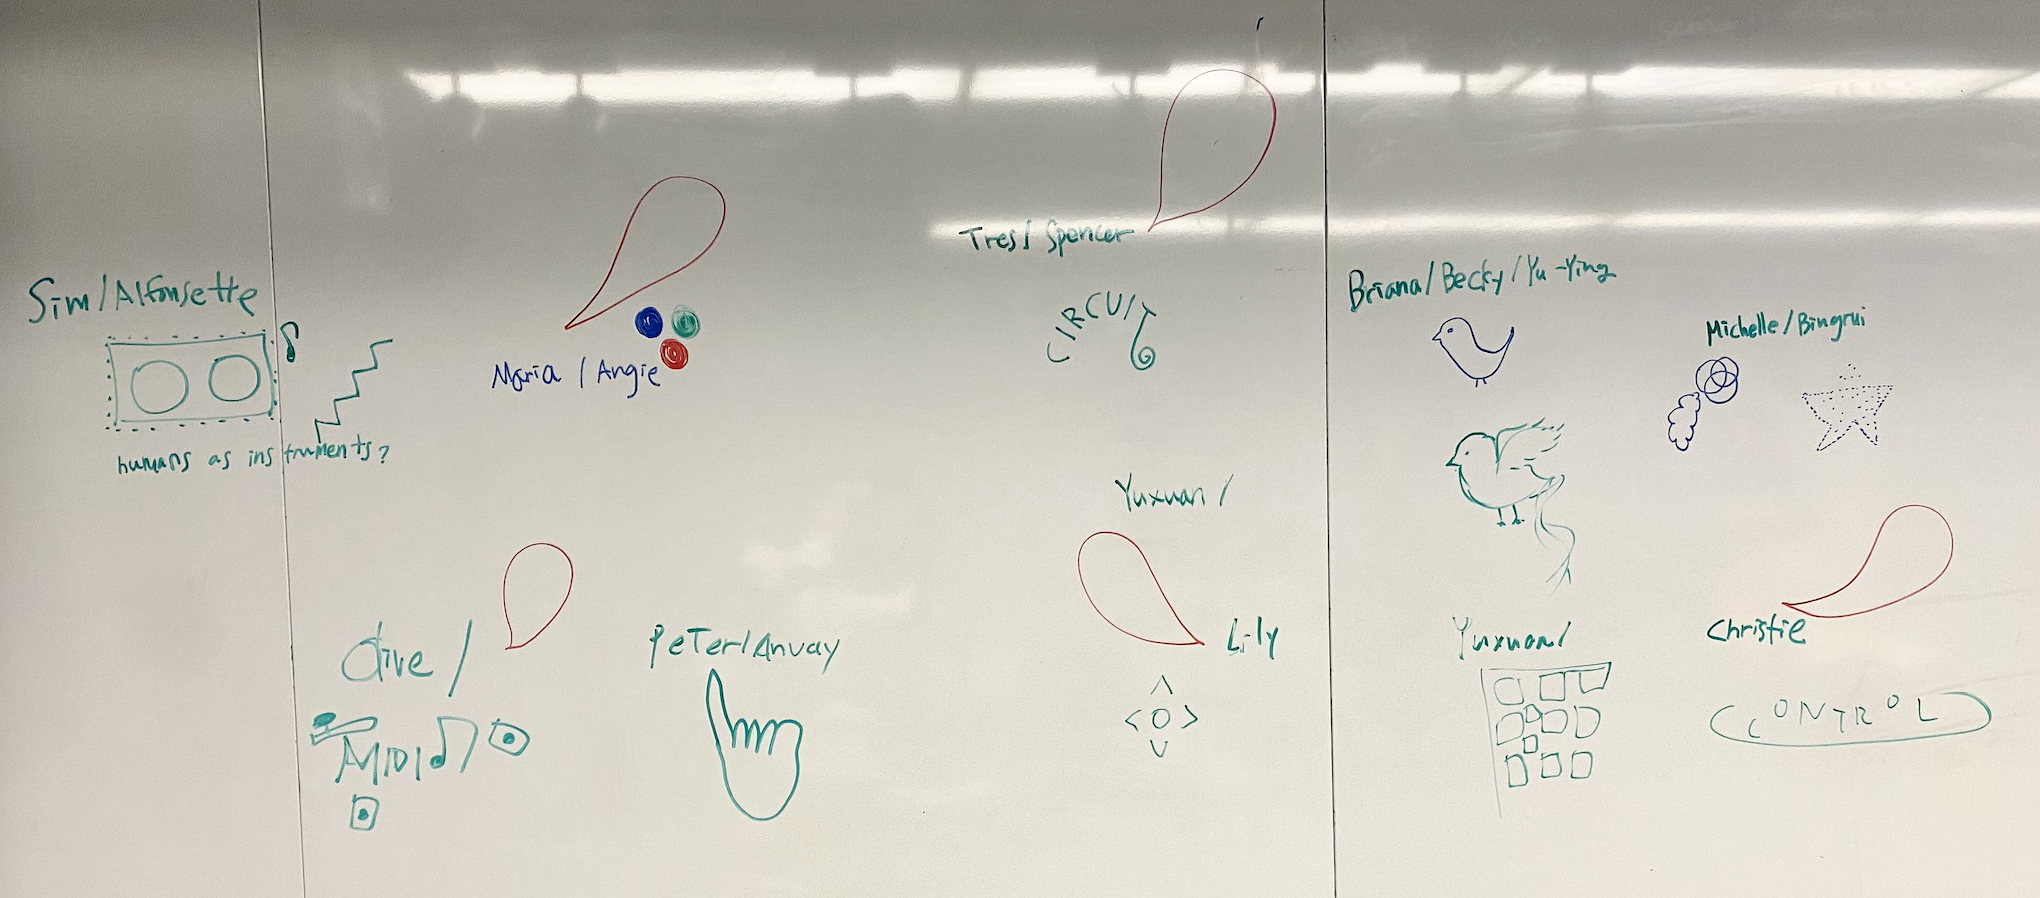 Sim/Alfonsette
humans as instruments?
Maria / Angie
Tres/ Spencer
CIRCUIT
Briana/Becky/Yu-Ying
Michelle/Bingrui
Yuxuan /
Lily
Olive /
MIDI
PeTer/Anvay
Yuxuan/
Christie
CONTROL